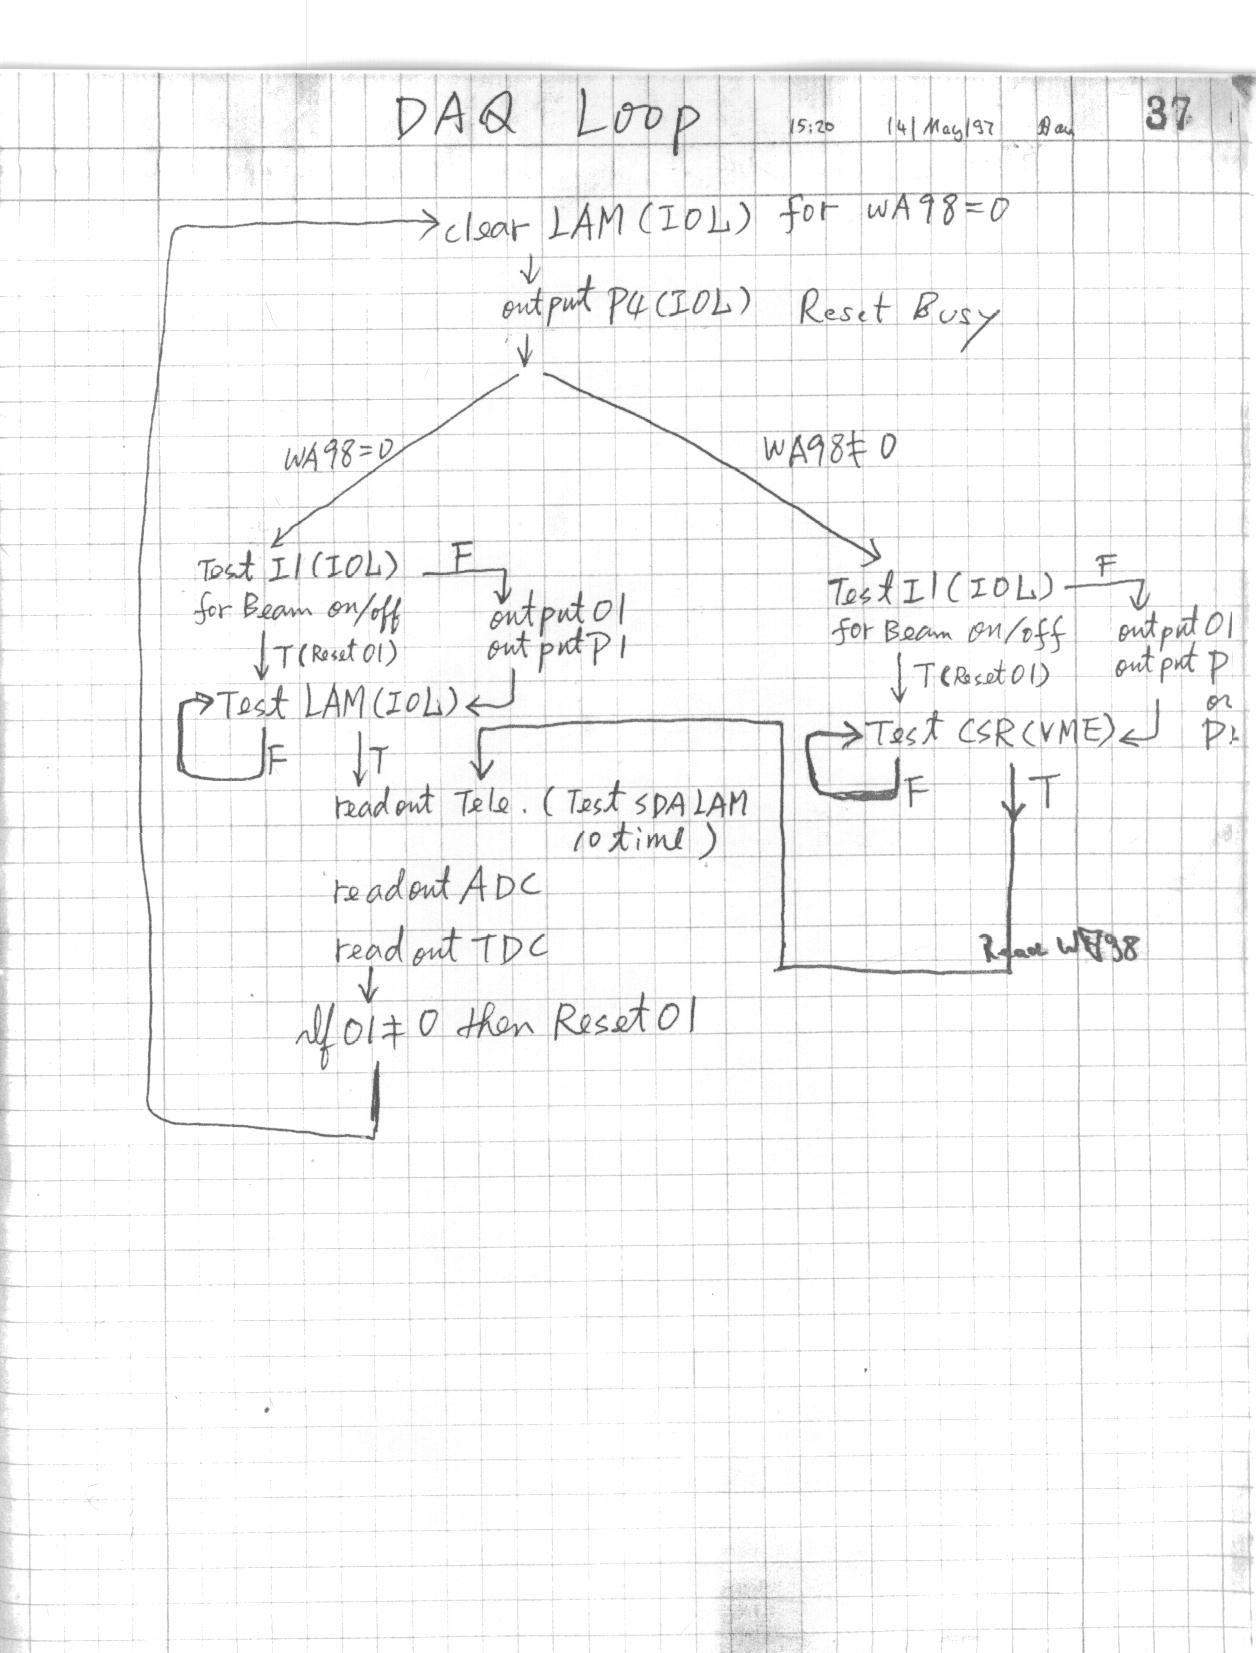 DAQ Loop 15:20 14/May/97 37
clear LAM (IOL) for WA98=0
output P4 (IOL) Reset Busy
WA98=0
WA98≠0
Test I1 (IOL) F
for Beam on/off
output O1
output P1
T (Reset O1)
Test LAM (IOL)
F T
Test I1 (IOL) F
for Beam on/off
output O1
output P
or
T (Reset O1)
Test CSR (VME)
F T
readout Tele. (Test SDA LAM
10 time)
readout ADC
readout TDC
Read WA98
if O1≠0 then Reset O1